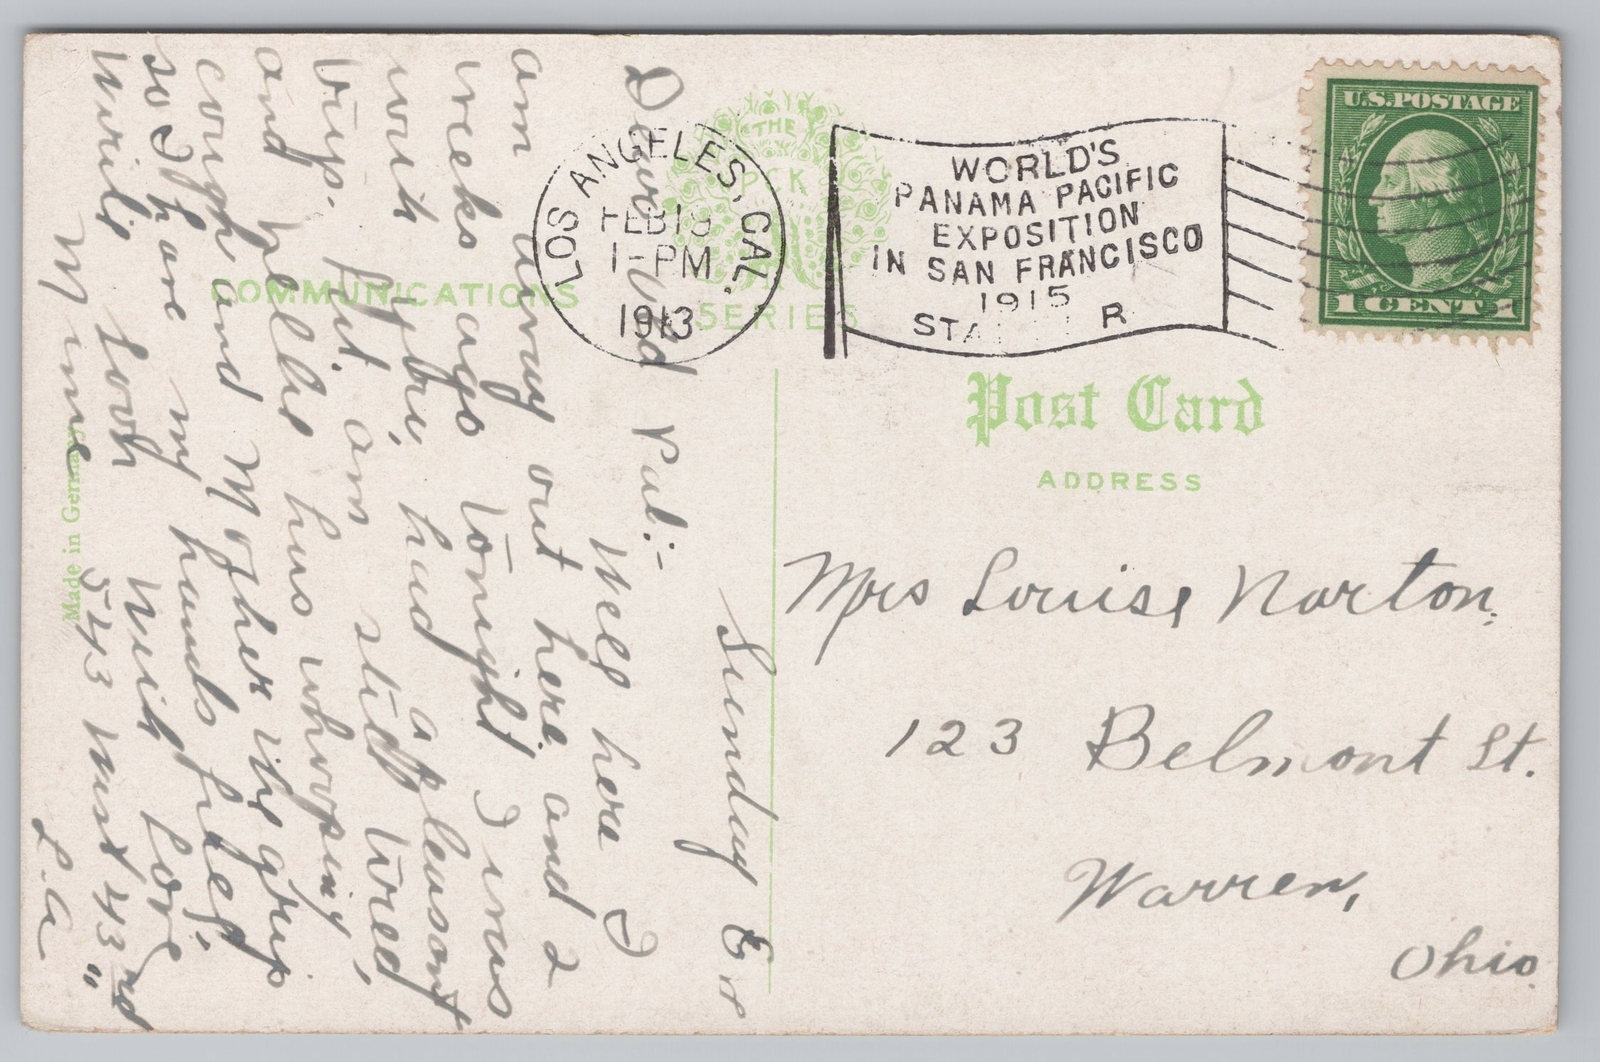 U.S. POSTAGE
1 CENT 1
LOS ANGELES, CAL.
FEB 19
1-PM
1913
WORLD'S
PANAMA PACIFIC
EXPOSITION
IN SAN FRANCISCO
1915
STA R
THE
P C K
SERIES
COMMUNICATIONS
Made in Germany
Post Card
ADDRESS
Mrs Louise Norton,
123 Belmont St.
Warren,
Ohio
Sunday Ev
Dear Old Pal:-
Well here I
am away out here and 2
weeks ago tonight I was
with you, had a pleasant
trip. but am still tired,
and Nellie has whooping
cough and Mother the grip
so I have my hands full.
Write soon With love
Mine 543 West 43rd "
L.A